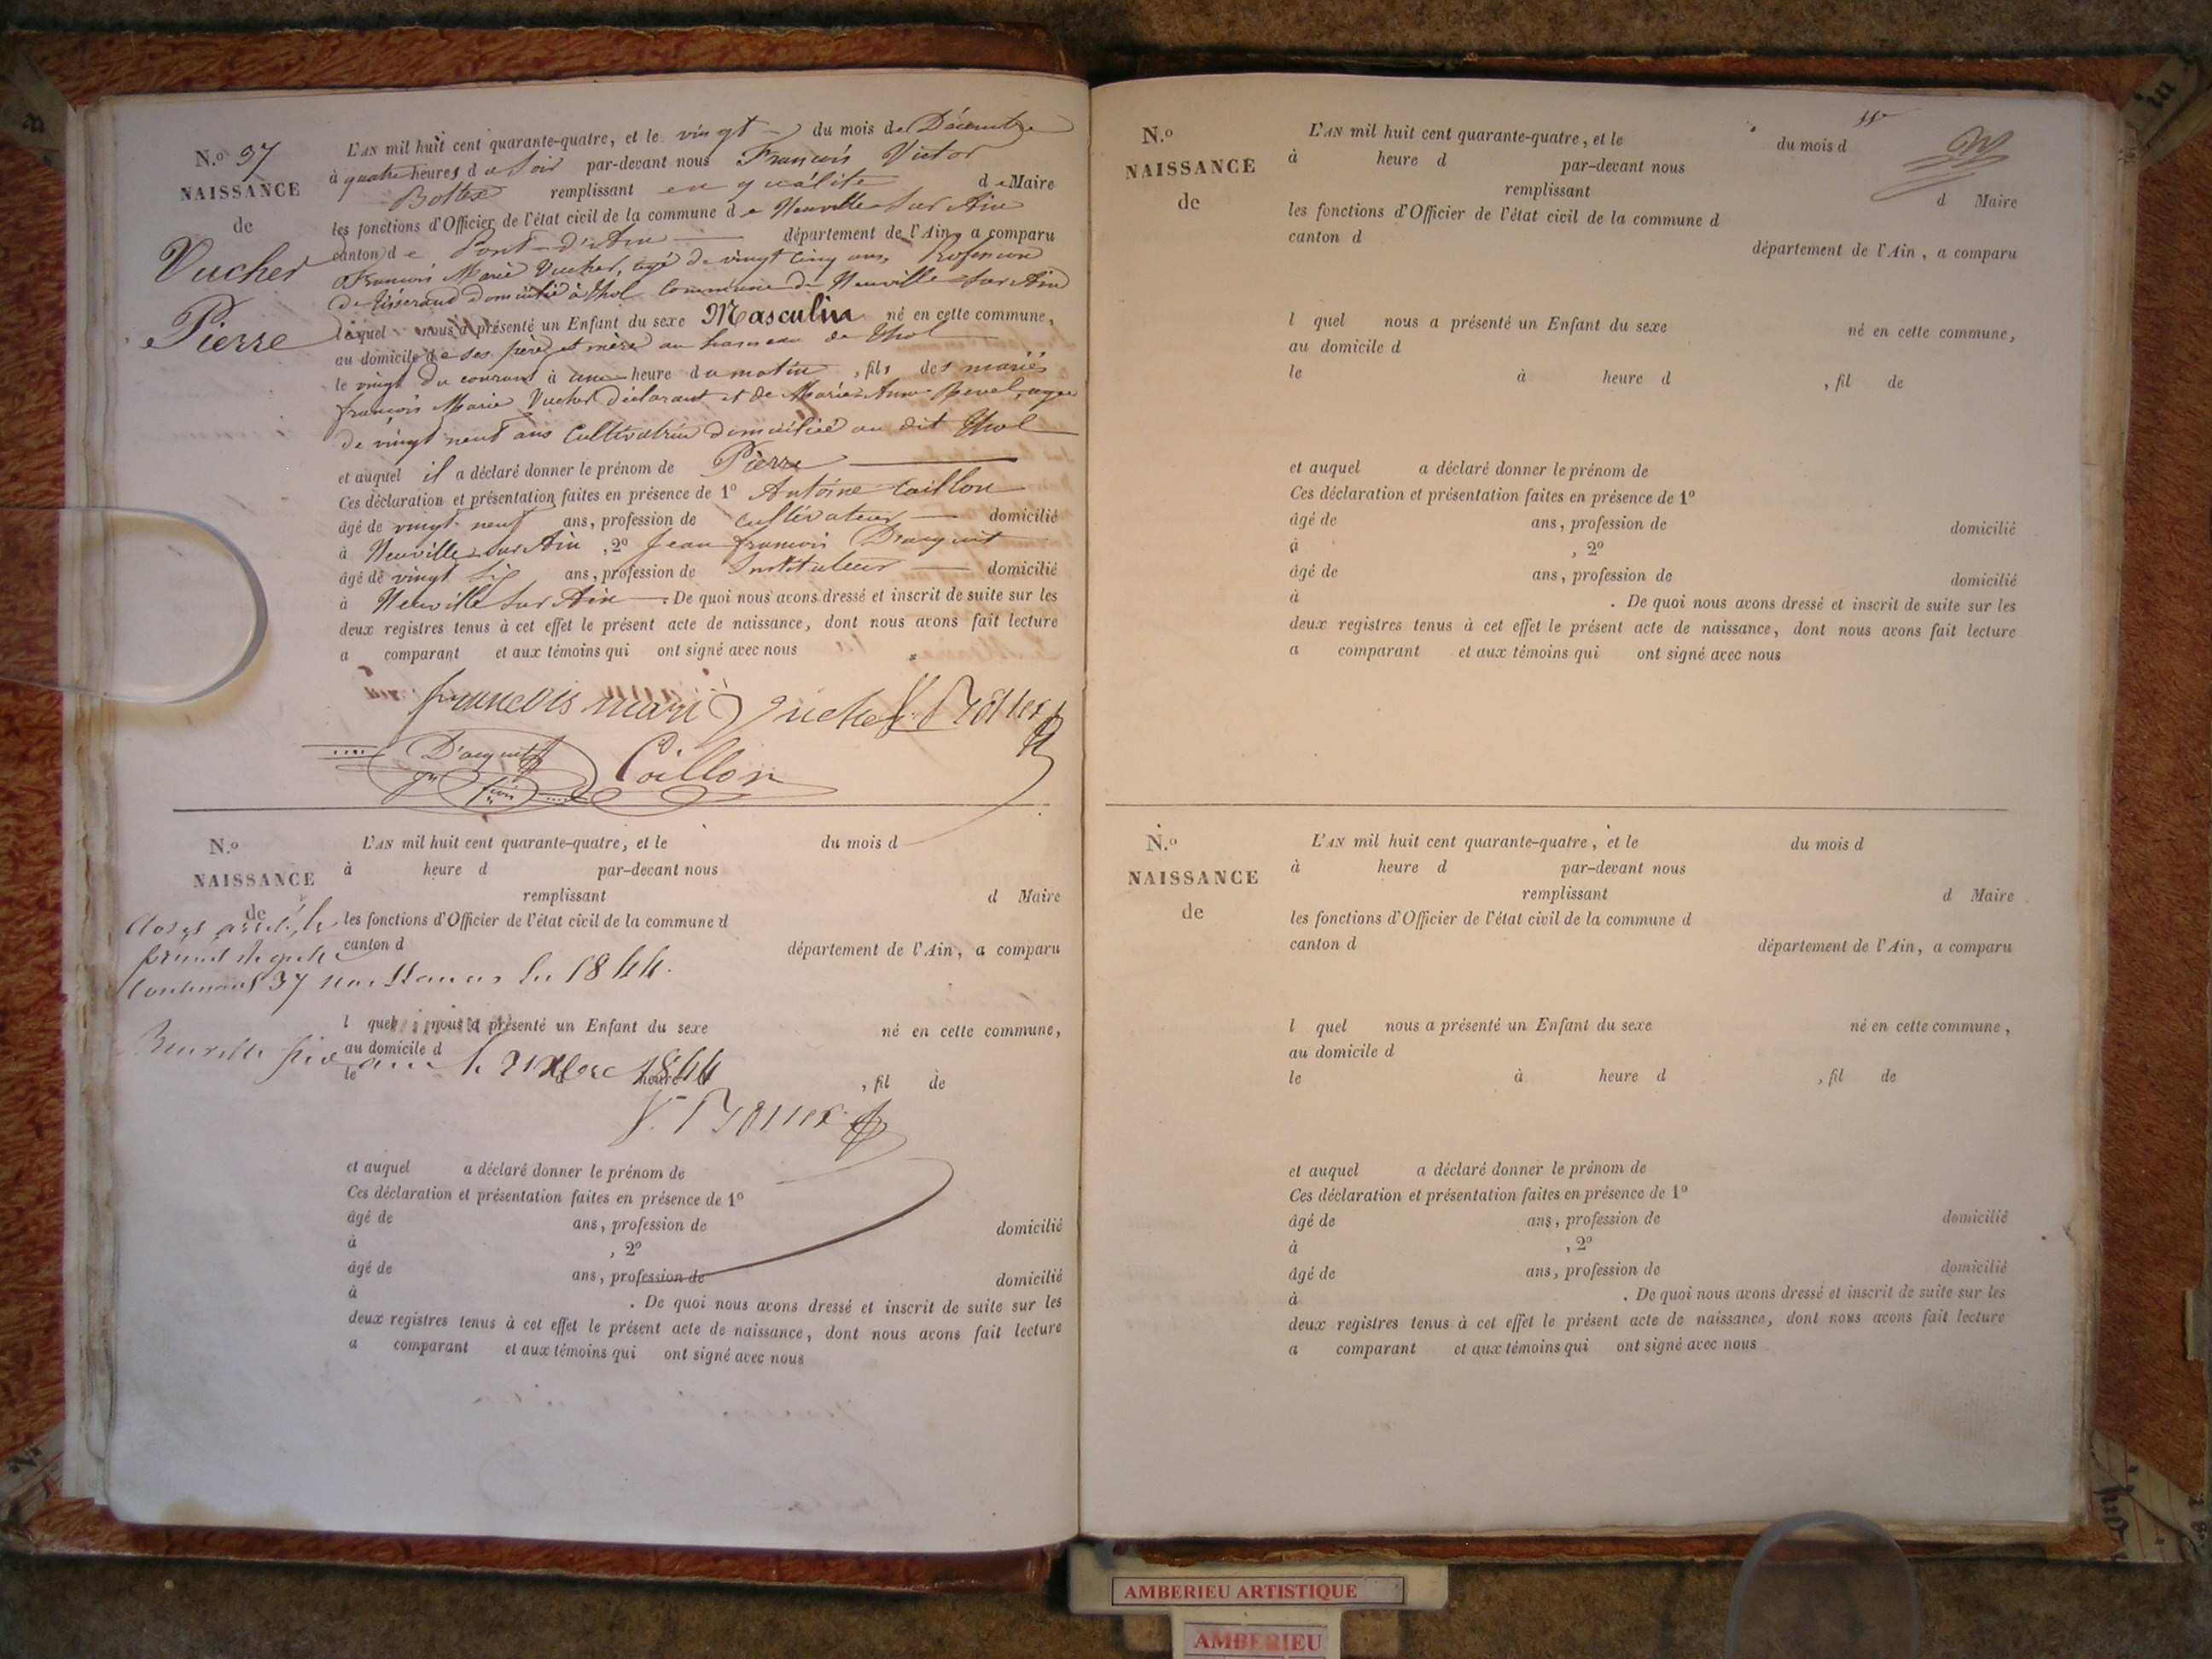 N.o 37
NAISSANCE
de
Vucher
Pierre
L'AN mil huit cent quarante-quatre, et le vingt du mois de Décembre
à quatre heures du Soir par-devant nous François Victor
Bottex remplissant en qualité de Maire
les fonctions d'Officier de l'état civil de la commune de Neuville sur Ain
canton de Pont-d'Ain département de l'Ain, a comparu
François Marie Vucher, agé de vingt cinq ans, Profession
de Tisserand domicilié à Thol Commune de Neuville sur Ain
lequel nous a présenté un Enfant du sexe Masculin né en cette commune,
au domicile de ses père et mère au hameau de Thol
le vingt du courant à une heure du matin, fils des mariés
françois Marie Vucher déclarant et de Marie Anne Revel, agée
de vingt neuf ans Cultivatrice domiciliée au dit Thol
et auquel il a déclaré donner le prénom de Pierre
Ces déclaration et présentation faites en présence de 1º Antoine Caillon
âgé de vingt neuf ans, profession de cultivateur domicilié
à Neuville sur Ain, 2º Jean françois
âgé de vingt six ans, profession de Instituteur domicilié
à Neuville sur Ain. De quoi nous avons dressé et inscrit de suite sur les
deux registres tenus à cet effet le présent acte de naissance, dont nous avons fait lecture
a comparant et aux témoins qui ont signé avec nous
francois mari Vucher V. Bottex
Caillon
N.o
NAISSANCE
de
L'AN mil huit cent quarante-quatre, et le du mois d
à heure d par-devant nous
remplissant d Maire
les fonctions d'Officier de l'état civil de la commune d
canton d
département de l'Ain, a comparu
Clos et arrêté le
présent registre
Contenant 37 naissances de 1844.
l quel nous a présenté un Enfant du sexe né en cette commune,
au domicile d
le à heure d , fil de
Neuville sur ain le 31 Xbre 1844
V. Bottex
et auquel a déclaré donner le prénom de
Ces déclaration et présentation faites en présence de 1º
âgé de ans, profession de domicilié
à , 2º
âgé de ans, profession de domicilié
à . De quoi nous avons dressé et inscrit de suite sur les
deux registres tenus à cet effet le présent acte de naissance, dont nous avons fait lecture
a comparant et aux témoins qui ont signé avec nous
N.o
NAISSANCE
de
L'AN mil huit cent quarante-quatre, et le du mois d
à heure d par-devant nous
remplissant d Maire
les fonctions d'Officier de l'état civil de la commune d
canton d
département de l'Ain, a comparu
l quel nous a présenté un Enfant du sexe né en cette commune,
au domicile d
le à heure d , fil de
et auquel a déclaré donner le prénom de
Ces déclaration et présentation faites en présence de 1º
âgé de ans, profession de domicilié
à , 2º
âgé de ans, profession de domicilié
à . De quoi nous avons dressé et inscrit de suite sur les
deux registres tenus à cet effet le présent acte de naissance, dont nous avons fait lecture
a comparant et aux témoins qui ont signé avec nous
N.o
NAISSANCE
de
L'AN mil huit cent quarante-quatre, et le du mois d
à heure d par-devant nous
remplissant d Maire
les fonctions d'Officier de l'état civil de la commune d
canton d département de l'Ain, a comparu
l quel nous a présenté un Enfant du sexe né en cette commune,
au domicile d
le à heure d , fil de
et auquel a déclaré donner le prénom de
Ces déclaration et présentation faites en présence de 1º
âgé de ans, profession de domicilié
à , 2º
âgé de ans, profession de domicilié
à . De quoi nous avons dressé et inscrit de suite sur les
deux registres tenus à cet effet le présent acte de naissance, dont nous avons fait lecture
a comparant et aux témoins qui ont signé avec nous
AMBERIEU ARTISTIQUE
AMBERIEU